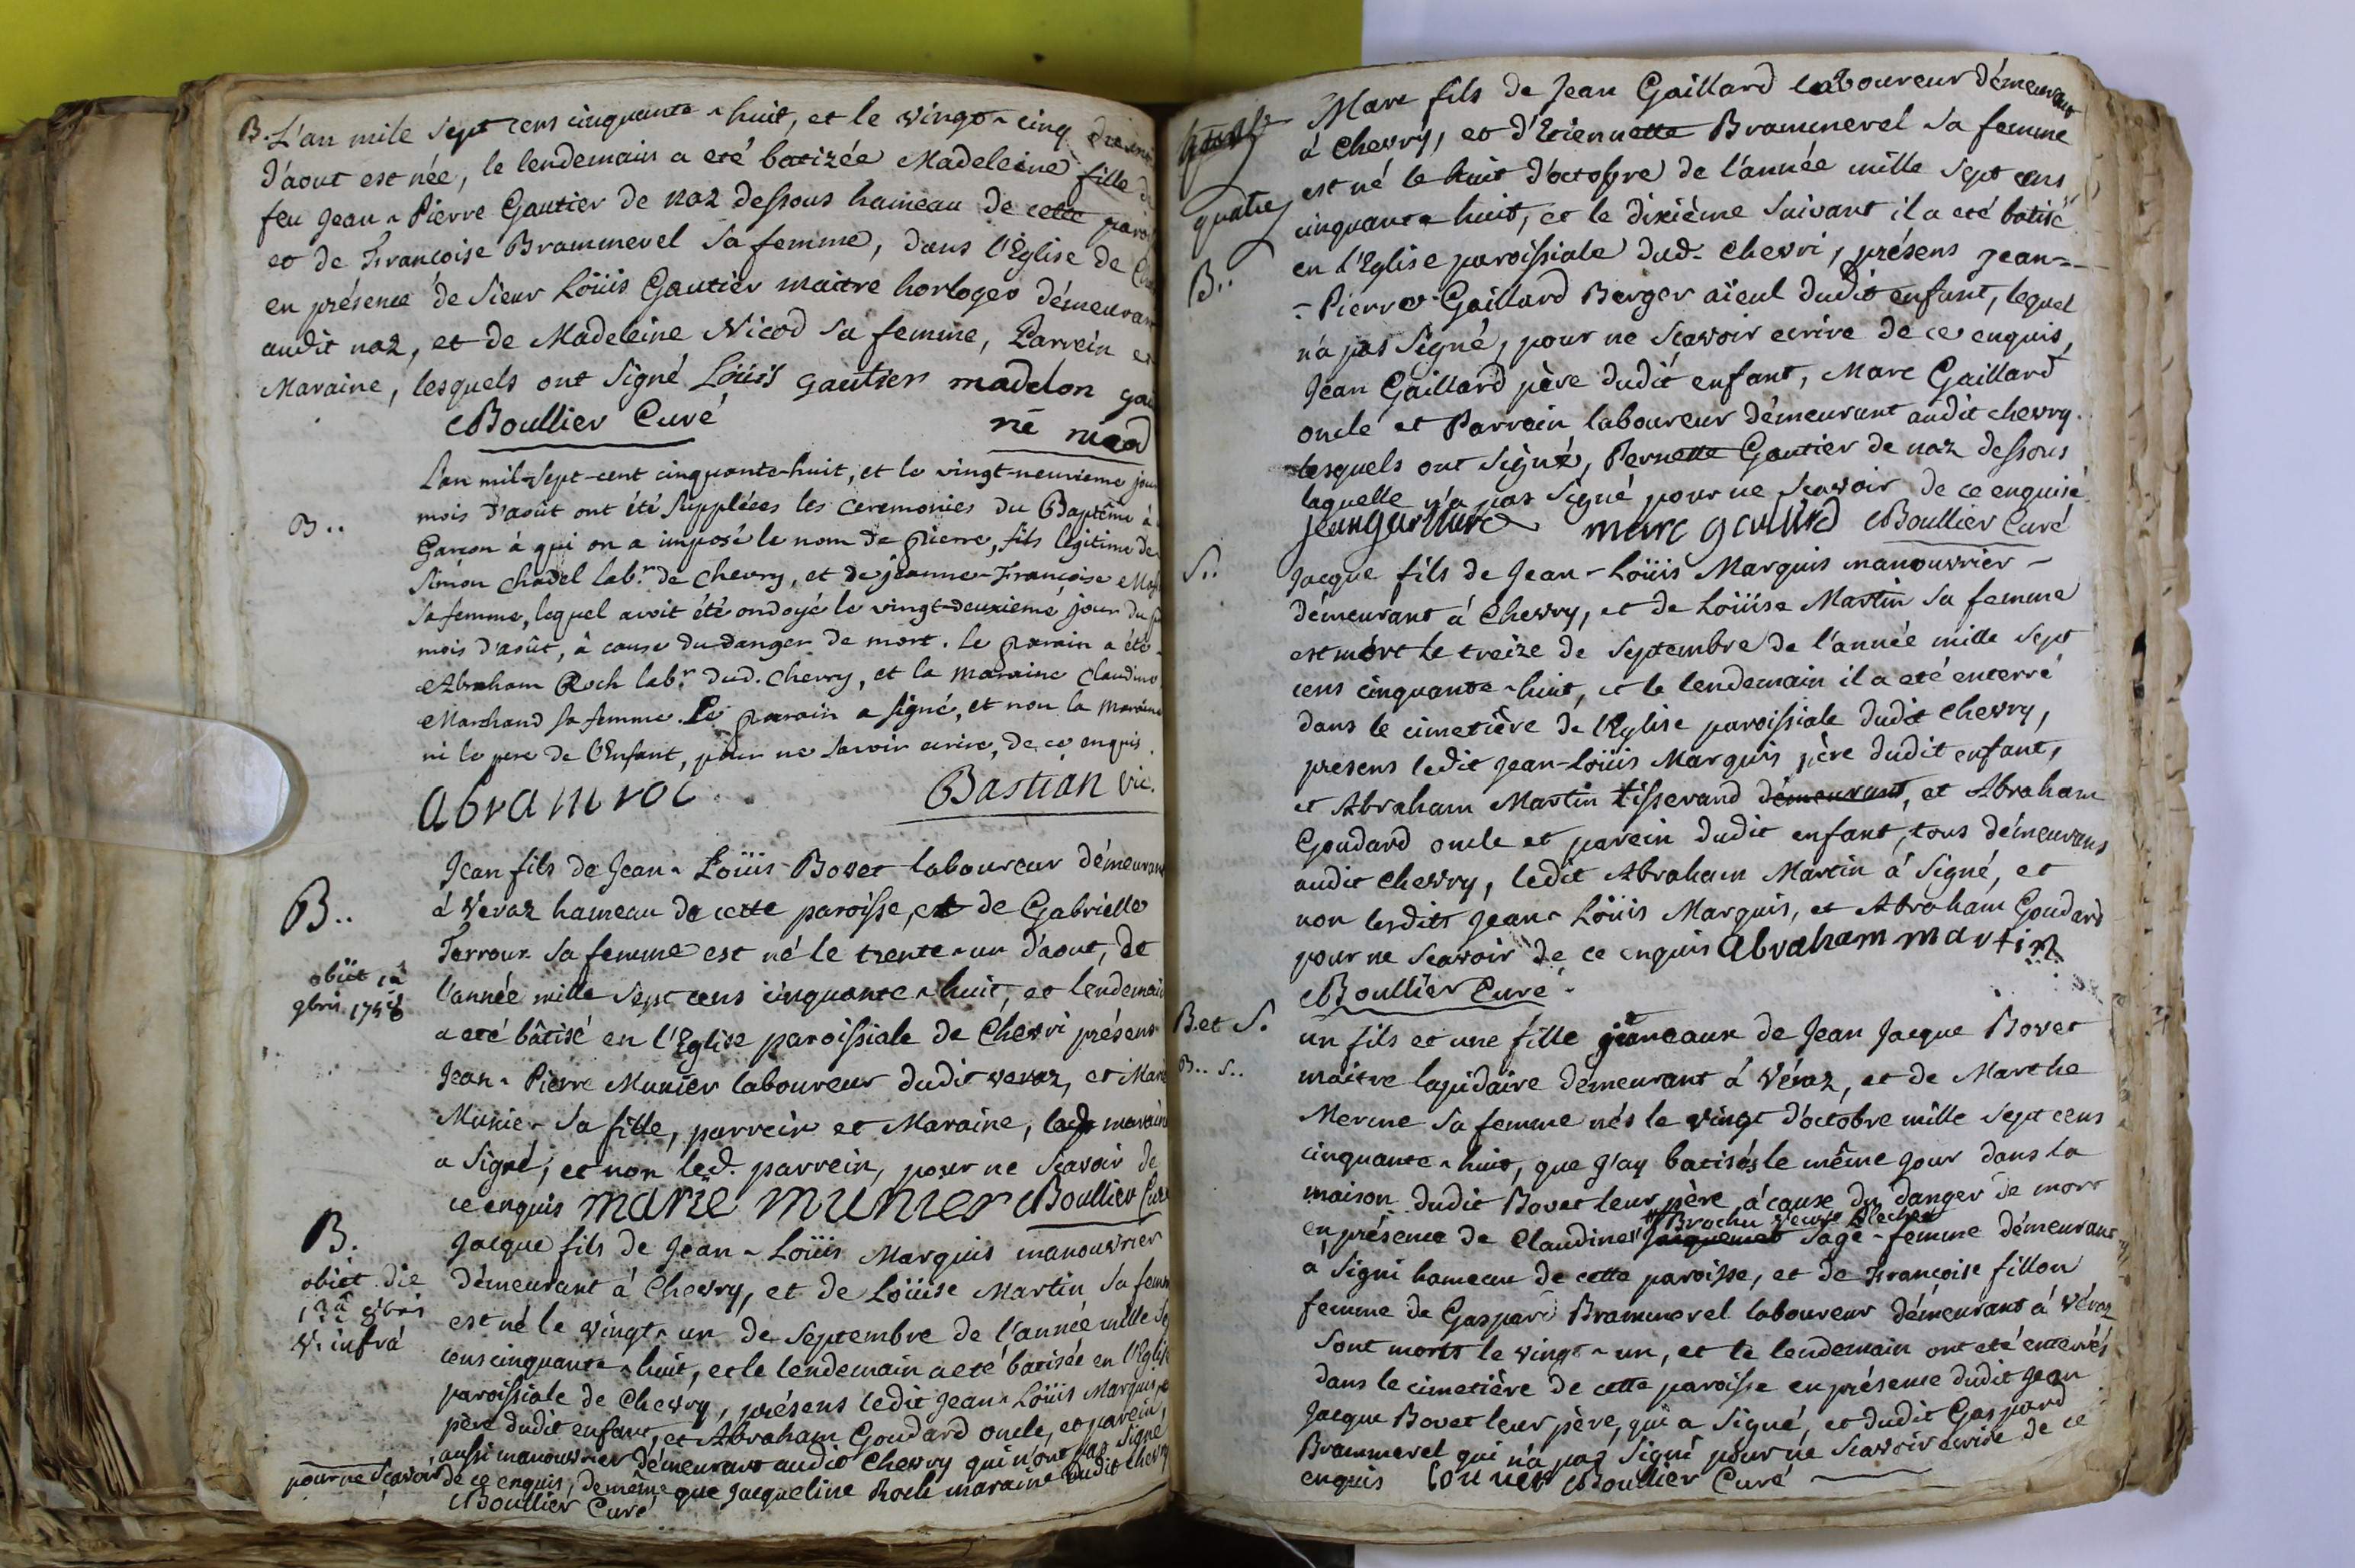 B. L'an mile sept cens cinquante-huit, et le vingt-cinq
d'aout est née, le lendemain a eté batizée Madeleine fille
feu Jean-Pierre Gautier de naz dessous hameau de cette
et de Françoise Brammerel sa femme, dans l'Eglise de
en présence de Sieur Loüis Gautier maitre horloger démeurant
audit naz, et de Madeleine Nicod sa femme, Parrein et
Maraine, lesquels ont Signé Loüis gautier madelon
Boullier Curé
né nicod
L'an mil-sept-cent cinquante-huit, et le vingt-neuvieme jour
B..
mois d'août ont été suppléees les ceremonies du Baptême à
Garçon à qui on a imposé le nom de Pierre, fils légitime de
Simon Chadel labr. de Chevry, et de jeanne-Françoise
sa femme, lequel avoit été ondoyé le vingt-deuxieme jour du
mois d'août, à cause du danger de mort. Le parain a été
Abraham Roch labr. dud. Chevry, et la maraine Claudine
Marchand sa femme. Le parain a signé, et non la maraine
ni le pere de l'Enfant, pour ne savoir ecrire, de ce enquis.
abram roc
Bastian vic.
Jean fils de Jean-Loüis Bovet laboureur démeurant
B..
à Veraz hameau de cette paroisse, et de Gabrielle
Terroux sa femme est né le trente-un d'aout, de
obiit 1a
9bris 1758
l'année mille sept cens cinquante-huit, et lendemain
a eté bâtisé en l'Eglise paroissiale de Chevri présens
Jean-Pierre Munier laboureur dudit veraz, et Marie
Munier sa fille, parrein et Maraine, lad. maraine
a signé, et non led. parrein, pour ne scavoir de
ce enquis marie munier Boullier Curé
B.
Jacque fils de Jean-Loüis Marquis manouvrier
obiit die
13a
v. infrá
démeurant à Chevry, et de Loüise Martin sa femme
est né le vingt-un de Septembre de l'année mille
cens cinquante-huit, et le lendemain a eté batisée en l'Eglise
paroissiale de Chevry, présens ledit Jean-Loüis Marquis
père dudit enfant, et Abraham Goudard oncle, et parein,
aussi manouvrier démeurant audit Chevry qui n'ont pas signé
pour ne scavoir de ce enquis, de même que Jacqueline Roch maraine dudit Chevry
Boullier Curé
Marc fils de Jean Gaillard laboureur démeurant
à Chevry, et d'Etiennette Brammerel sa femme
est né le huit d'octobre de l'année mille sept cens
quatre
cinquante huit, et le dixième suivant il a eté batisé
en l'Eglise paroissiale dud. Chevri, présens Jean-
B..
-Pierre Gaillard Berger aïeul dudit enfant, lequel
n'a pas signé, pour ne scavoir ecrire de ce enquis,
Jean Gaillard père dudit enfant, Marc Gaillard
oncle et Parrein laboureur démeurant audit chevry.
lesquels ont signé, Pernette Gautier de naz dessous
laquelle n'a pas signé pour ne scavoir de ce enquise
jean gaillard marc galliard Boullier Curé
S..
Jacque fils de Jean-Loüis Marquis manouvrier -
démeurant à Chevry, et de Loüise Martin sa femme
est mort le treize de Septembre de l'année mille sept
cens cinquante-huit, et le lendemain il a eté enterré
dans le cimetière de l'Eglise paroissiale dudit Chevry,
présens ledit Jean-Loüis Marquis père dudit enfant,
et Abraham Martin tisserand démeurant, et Abraham
Goudard oncle et parein dudit enfant, tous démeurans
audit Chevry, ledit Abraham Martin à signé, et
non lesdits Jean-Loüis Marquis, et Abraham Goudard
pour ne scavoir de ce enquis Abraham martin
Boullier Curé.
B. et S.
un fils et une fille jumeaux de Jean Jacque Bovet
B.. S..
maitre lapidaire démeurant à Véraz, et de Marthe
Merme sa femme nés le vingt d'octobre mille sept cens
cinquante-huit, que j'ay batisés le même jour dans la
maison dudit Bovet leur père à cause du danger de mort
Brochu veuve
en présence de Claudine Jacquemet sage-femme démeurant
à Signi hameau de cette paroisse, et de Françoise fillon
femme de Gaspard Brammerel laboureur démeurant à Véraz
Sont morts le vingt-un, et le lendemain ont eté enterrés
dans le cimetière de cette paroisse en présence dudit Jean
Jacque Bovet leur père, qui a signé, et dudit Gaspard
Brammerel qui n'a pas signé pour ne scavoir ecrire de ce
enquis Boullier Curé